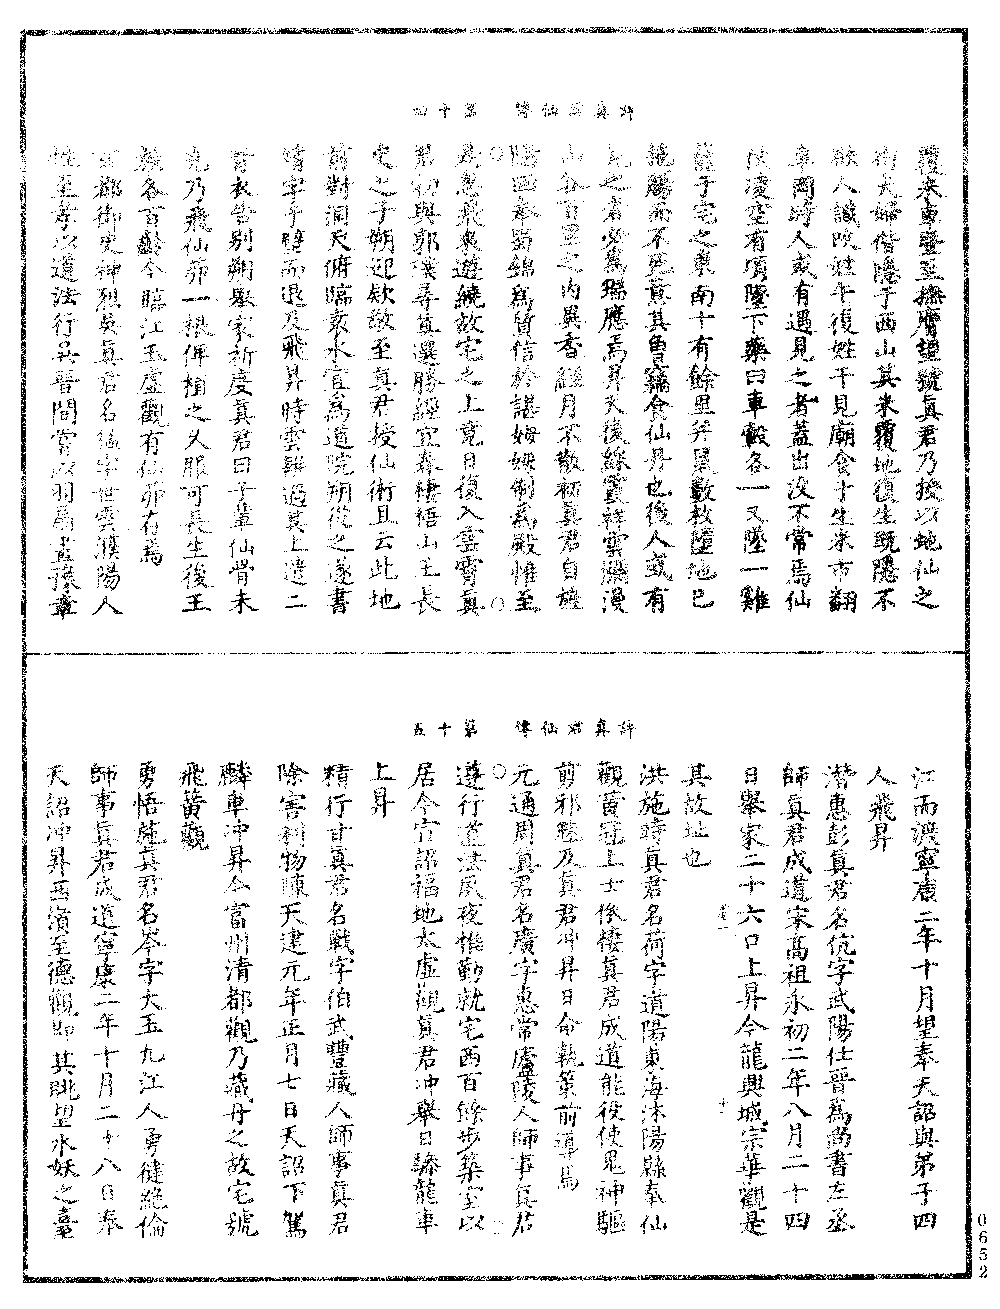 許真君仙傳　第十四
覆米車亟至撫膺號真君乃授以地仙之
術夫婦偕隱于西山其米覆地復生既隱不
欲人識改姓午復姓干見廟食于生米市翻
車岡時人或有遇見之者蓋出沒不常焉仙
仗凌空有頃墜下藥臼車轂各一又墜一雞
籠于宅之東南十有餘里并鼠數枚墮地已
腸而不死蓋其嘗竊食仙丹也後人或有
見之者必為瑞應焉昇天後綵雲祥雲瀰漫
山谷百里之內異香經月不散初真君自旌
陽回奉蜀錦為質信於諶姆姆制為殿帷至
是忽飛來遊繞故宅之上竟日復入雲霄真
君初與郭璞尋真選勝經宜春棲梧山王長
史之子朔迎欸敬至真君授仙術且云此地
前對洞天俯臨袁水宜為道院朔從之遂書
字于壁而退及飛昇時雲輧過其上遣二
青衣告別朔舉家祈度真君曰子輩仙骨未
充乃飛仙茆一根俾植之久服可長生後王
族各百齡今臨江玉虛觀有仙茆存焉
都御史神烈吳真君名猛字世雲濮陽人
性至孝以道法行吳晉間嘗以羽扇畫豫章
許真君仙傳　第十五
江而濟寧康二年十月望奉天詔與弟子四
人飛昇
潛惠彭真君名伉字武陽仕晉為尚書左丞
師真君成道宋高祖永初二年八月二十四
日舉家二十六口上昇今龍興城宗華觀是
其故址也
洪施時真君名荷字道陽東海沐陽縣奉仙
觀黃冠上士後棲真君成道能役使鬼神驅
剪邪魅及真君冲昇日命執策前導焉
元通周真君名廣字惠常廬陵人師事真君
遵行道法夙夜惟勤就宅西百餘步築室以
居今宣詔福地太虛觀真君冲舉日驂龍車
上昇
精行甘真君名戰字伯武豐城人師事真君
除害利物陳天建元年正月七日天詔下駕
麟車冲昇今富州清都觀乃藏丹之故宅號
飛簧觀
勇悟施真君名岑字大玉九江人勇健絕倫
師事真君成道寧康二年十月二十八日奉
天詔冲昇西濱至德觀即其眺望水妖之臺
0652